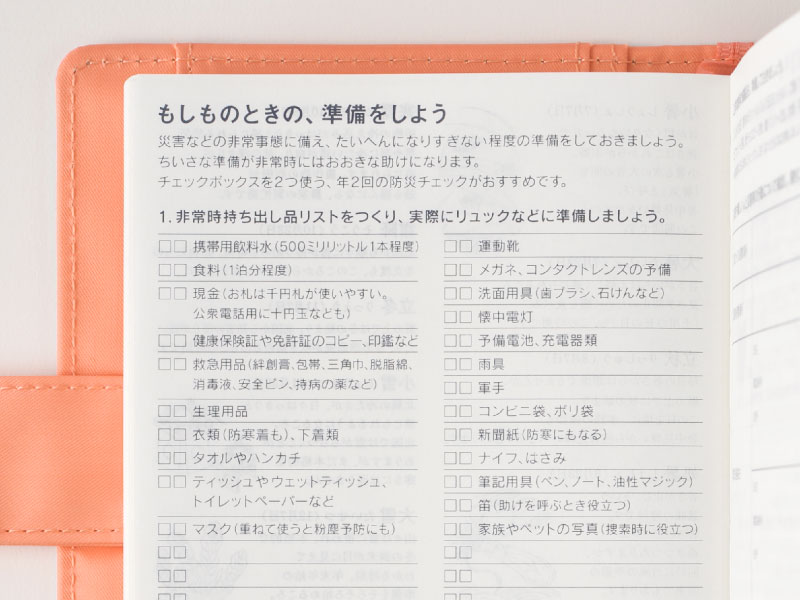 もしものときの、準備をしよう
災害などの非常事態に備え、たいへんになりすぎない程度の準備をしておきましょう。
ちいさな準備が非常時にはおおきな助けになります。
チェックボックスを2つ使う、年2回の防災チェックがおすすめです。
1. 非常時持ち出し品リストをつくり、実際にリュックなどに準備しましょう。
□□ 携帯用飲料水(500ミリリットル1本程度)
□□ 食料(1泊分程度)
□□ 現金(お札は千円札が使いやすい。
公衆電話用に十円玉なども)
□□ 健康保険証や免許証のコピー、印鑑など
□□ 救急用品(絆創膏、包帯、三角巾、脱脂綿、
消毒液、安全ピン、持病の薬など)
□□ 生理用品
□□ 衣類(防寒着も)、下着類
□□ タオルやハンカチ
□□ ティッシュやウェットティッシュ、
トイレットペーパーなど
□□ マスク(重ねて使うと粉塵予防にも)
□□ 運動靴
□□ メガネ、コンタクトレンズの予備
□□ 洗面用具(歯ブラシ、石けんなど)
□□ 懐中電灯
□□ 予備電池、充電器類
□□ 雨具
□□ 軍手
□□ コンビニ袋、ポリ袋
□□ 新聞紙(防寒にもなる)
□□ ナイフ、はさみ
□□ 筆記用具(ペン、ノート、油性マジック)
□□ 笛(助けを呼ぶとき役立つ)
□□ 家族やペットの写真(捜索時に役立つ)